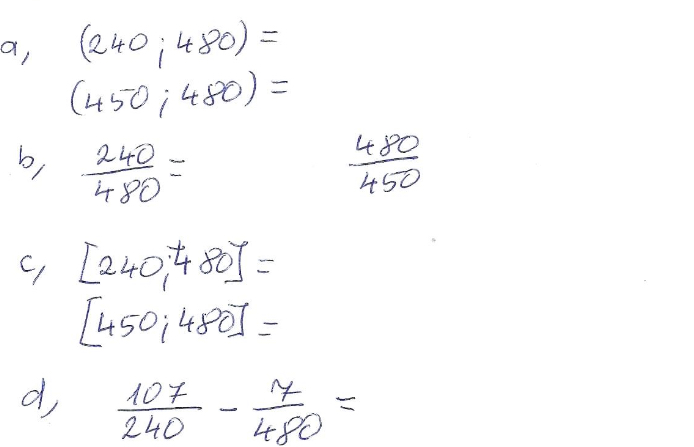 a, (240 ; 480) =
(450 ; 480) =
b, 240/480 = 480/450
c, [240 ; 480] =
[450 ; 480] =
d, 107/240 - 7/480 =